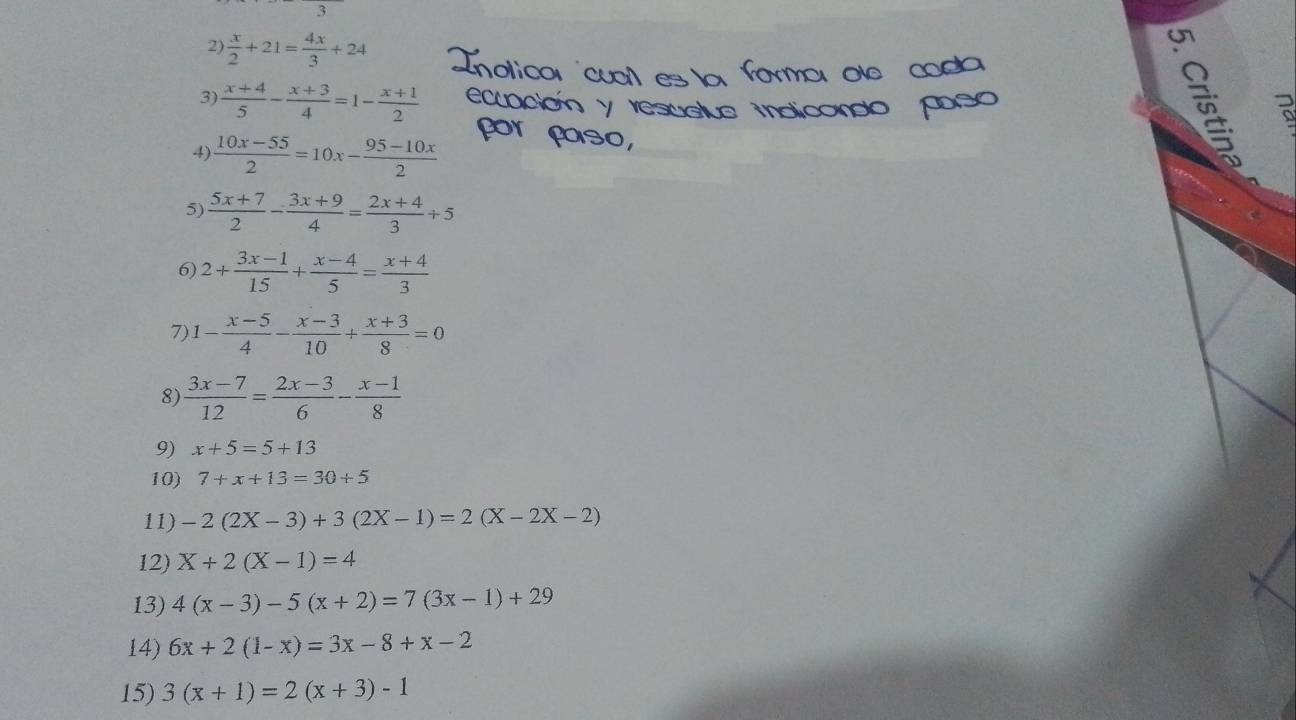 3
2) x/2 + 21 = 4x/3 + 24
Indica cual es la forma de cada
ecuación y resuelve indicando paso
por paso,
3) x+4/5 − x+3/4 = 1 − x+1/2
4) 10x−55/2 = 10x − 95−10x/2
5) 5x+7/2 − 3x+9/4 = 2x+4/3 + 5
6) 2 + 3x−1/15 + x−4/5 = x+4/3
7) 1 − x−5/4 − x−3/10 + x+3/8 = 0
8) 3x−7/12 = 2x−3/6 − x−1/8
9) x+5=5+13
10) 7+x+13=30+5
11) − 2 (2X − 3) + 3 (2X − 1) = 2 (X − 2X − 2)
12) X + 2 (X − 1) = 4
13) 4 (x − 3) − 5 (x + 2) = 7 (3x − 1) + 29
14) 6x + 2 (1- x) = 3x − 8 + x − 2
15) 3 (x + 1) = 2 (x + 3) - 1
5. Cristina